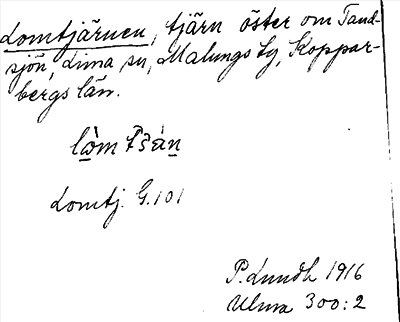 Lomtjärnen, tjärn öster om Tand-
sjön, Lima sn, Malungs tg, Koppar-
bergs län.
Lomtj. G.101
P. Lundh 1916
Ulma 300:2